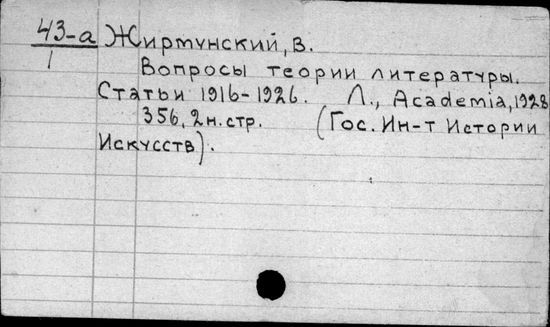 43-а Жирмунский, В.
1
Вопросы теории литературы.
Статьи 1916-1926. Л., Academia, 1928
356, 2 н. стр. (Гос. Ин-т Истории
Искусств).